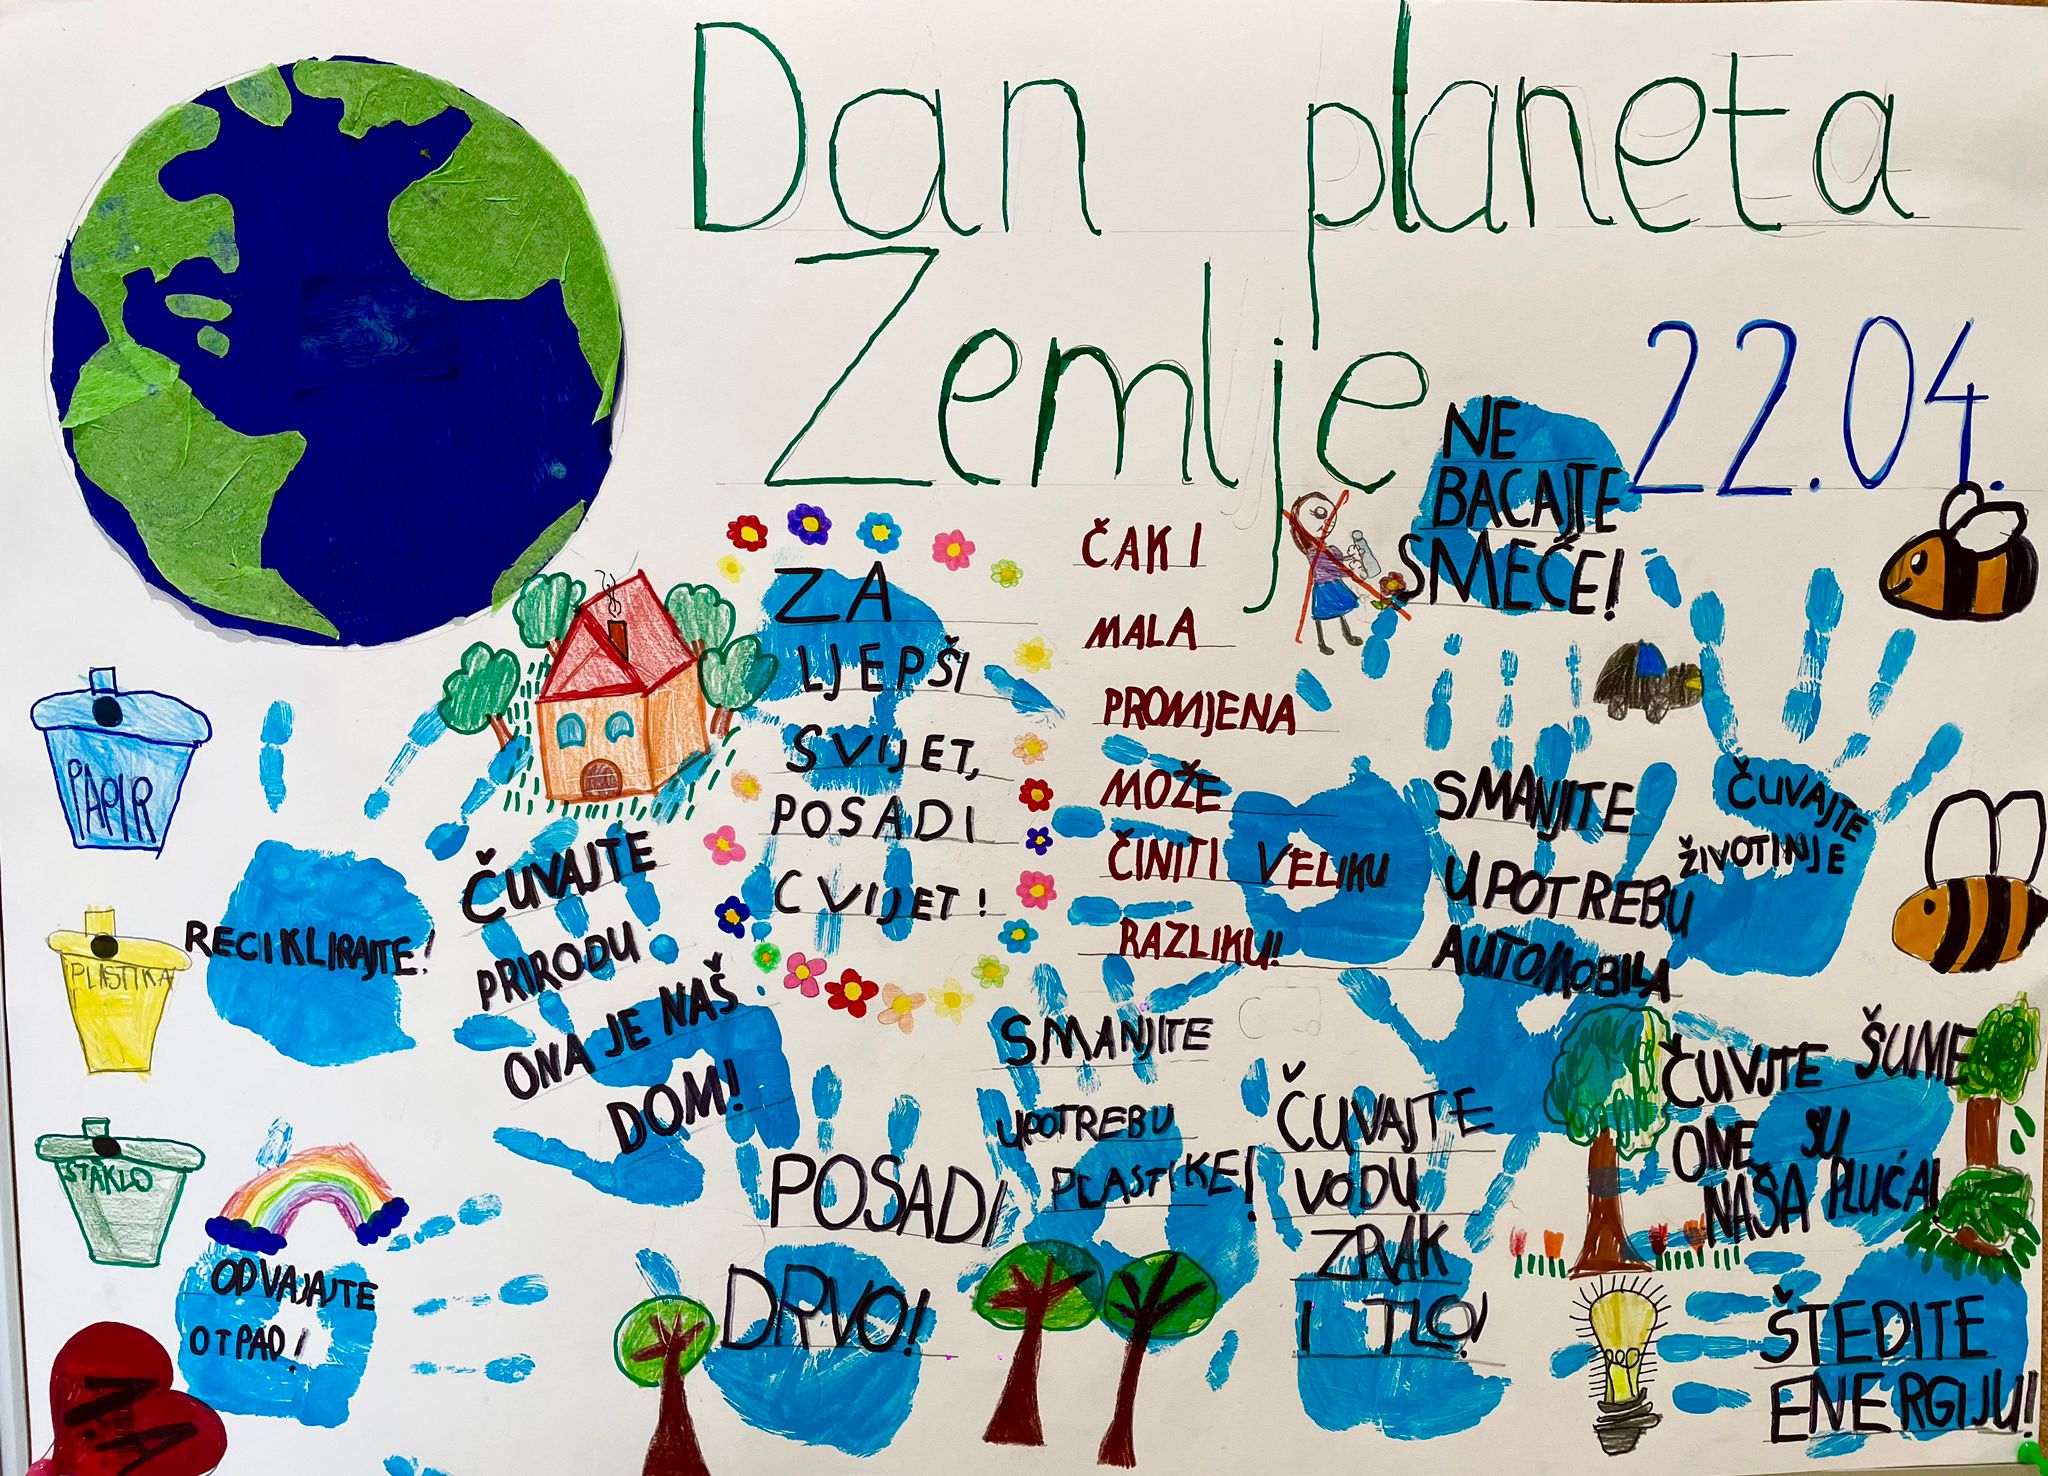 Dan planeta
Zemlje 22.04.
NE
BACAJTE
SMEĆE!
ZA
LJEPŠI
SVIJET,
POSADI
CVIJET!
ČAK I
MALA
PROMJENA
MOŽE
ČINITI VELIKU
RAZLIKU!
SMANJITE
UPOTREBU
AUTOMOBILA
ČUVAJTE
ŽIVOTINJE
PAPIR
PLASTIKA
STAKLO
RECIKLIRAJTE!
ČUVAJTE
PRIRODU
ONA JE NAŠ
DOM!
ODVAJAJTE
OTPAD!
POSADI
DRVO!
SMANJITE
UPOTREBU
PLASTIKE!
ČUVAJTE
VODU
ZRAK
I TLO!
ČUVJTE ŠUME
ONE SU
NAŠA PLUĆA!
ŠTEDITE
ENERGIJU!